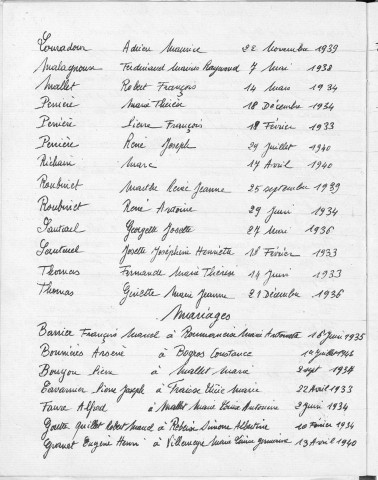 Louradour Adrien Maurice 22 Novembre 1939
Malagnoux Ferdinand Marius Raymond 7 Mai 1938
Mallet Robert François 14 Mars 1934
Perrière Marie Thérèse 18 Décembre 1934
Perrière Pierre François 18 Février 1933
Perrière René Joseph 29 Juillet 1940
Richain Marc 17 Avril 1940
Roubinet Marthe René Jeanne 25 septembre 1939
Roubinet René Antoine 29 Juin 1934
Sautael Georgette Josette 27 Mai 1936
Josette Joséphine Henriette 18 Février 1933
Thomas Fernande Marie Thérèse 14 Juin 1933
Thomas Ginette Marie Jeanne 21 Décembre 1936
Mariages
Barrier François Marcel à Marie Antoinette 16 Juin 1935
Bounières Arsène à Bogros Constance
Bouyon Pierre à Mallet Marie 2 sept 1934
Pierre Joseph à Marie 22 Avril 1933
Faure Alfred à Mallet Marie Antonine 2 Juin 1934
Robert à Simone Albertine 10 Février 1934
Eugène Henri à Villeneuve Marie Germaine 13 Avril 1940